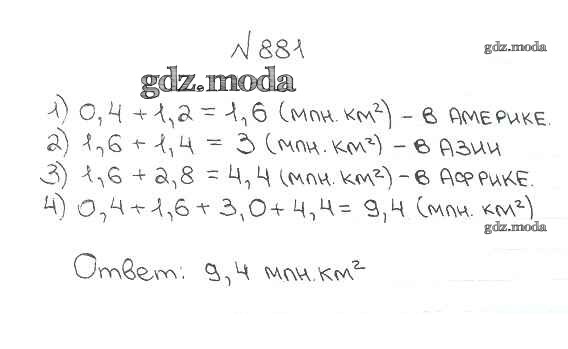 №881
gdz.moda
gdz.moda
1) 0,4 + 1,2 = 1,6 (млн. км²) - в Америке.
2) 1,6 + 1,4 = 3 (млн. км²) - в Азии
3) 1,6 + 2,8 = 4,4 (млн. км²) - в Африке.
4) 0,4 + 1,6 + 3,0 + 4,4 = 9,4 (млн. км²)
gdz.moda
Ответ: 9,4 млн. км²